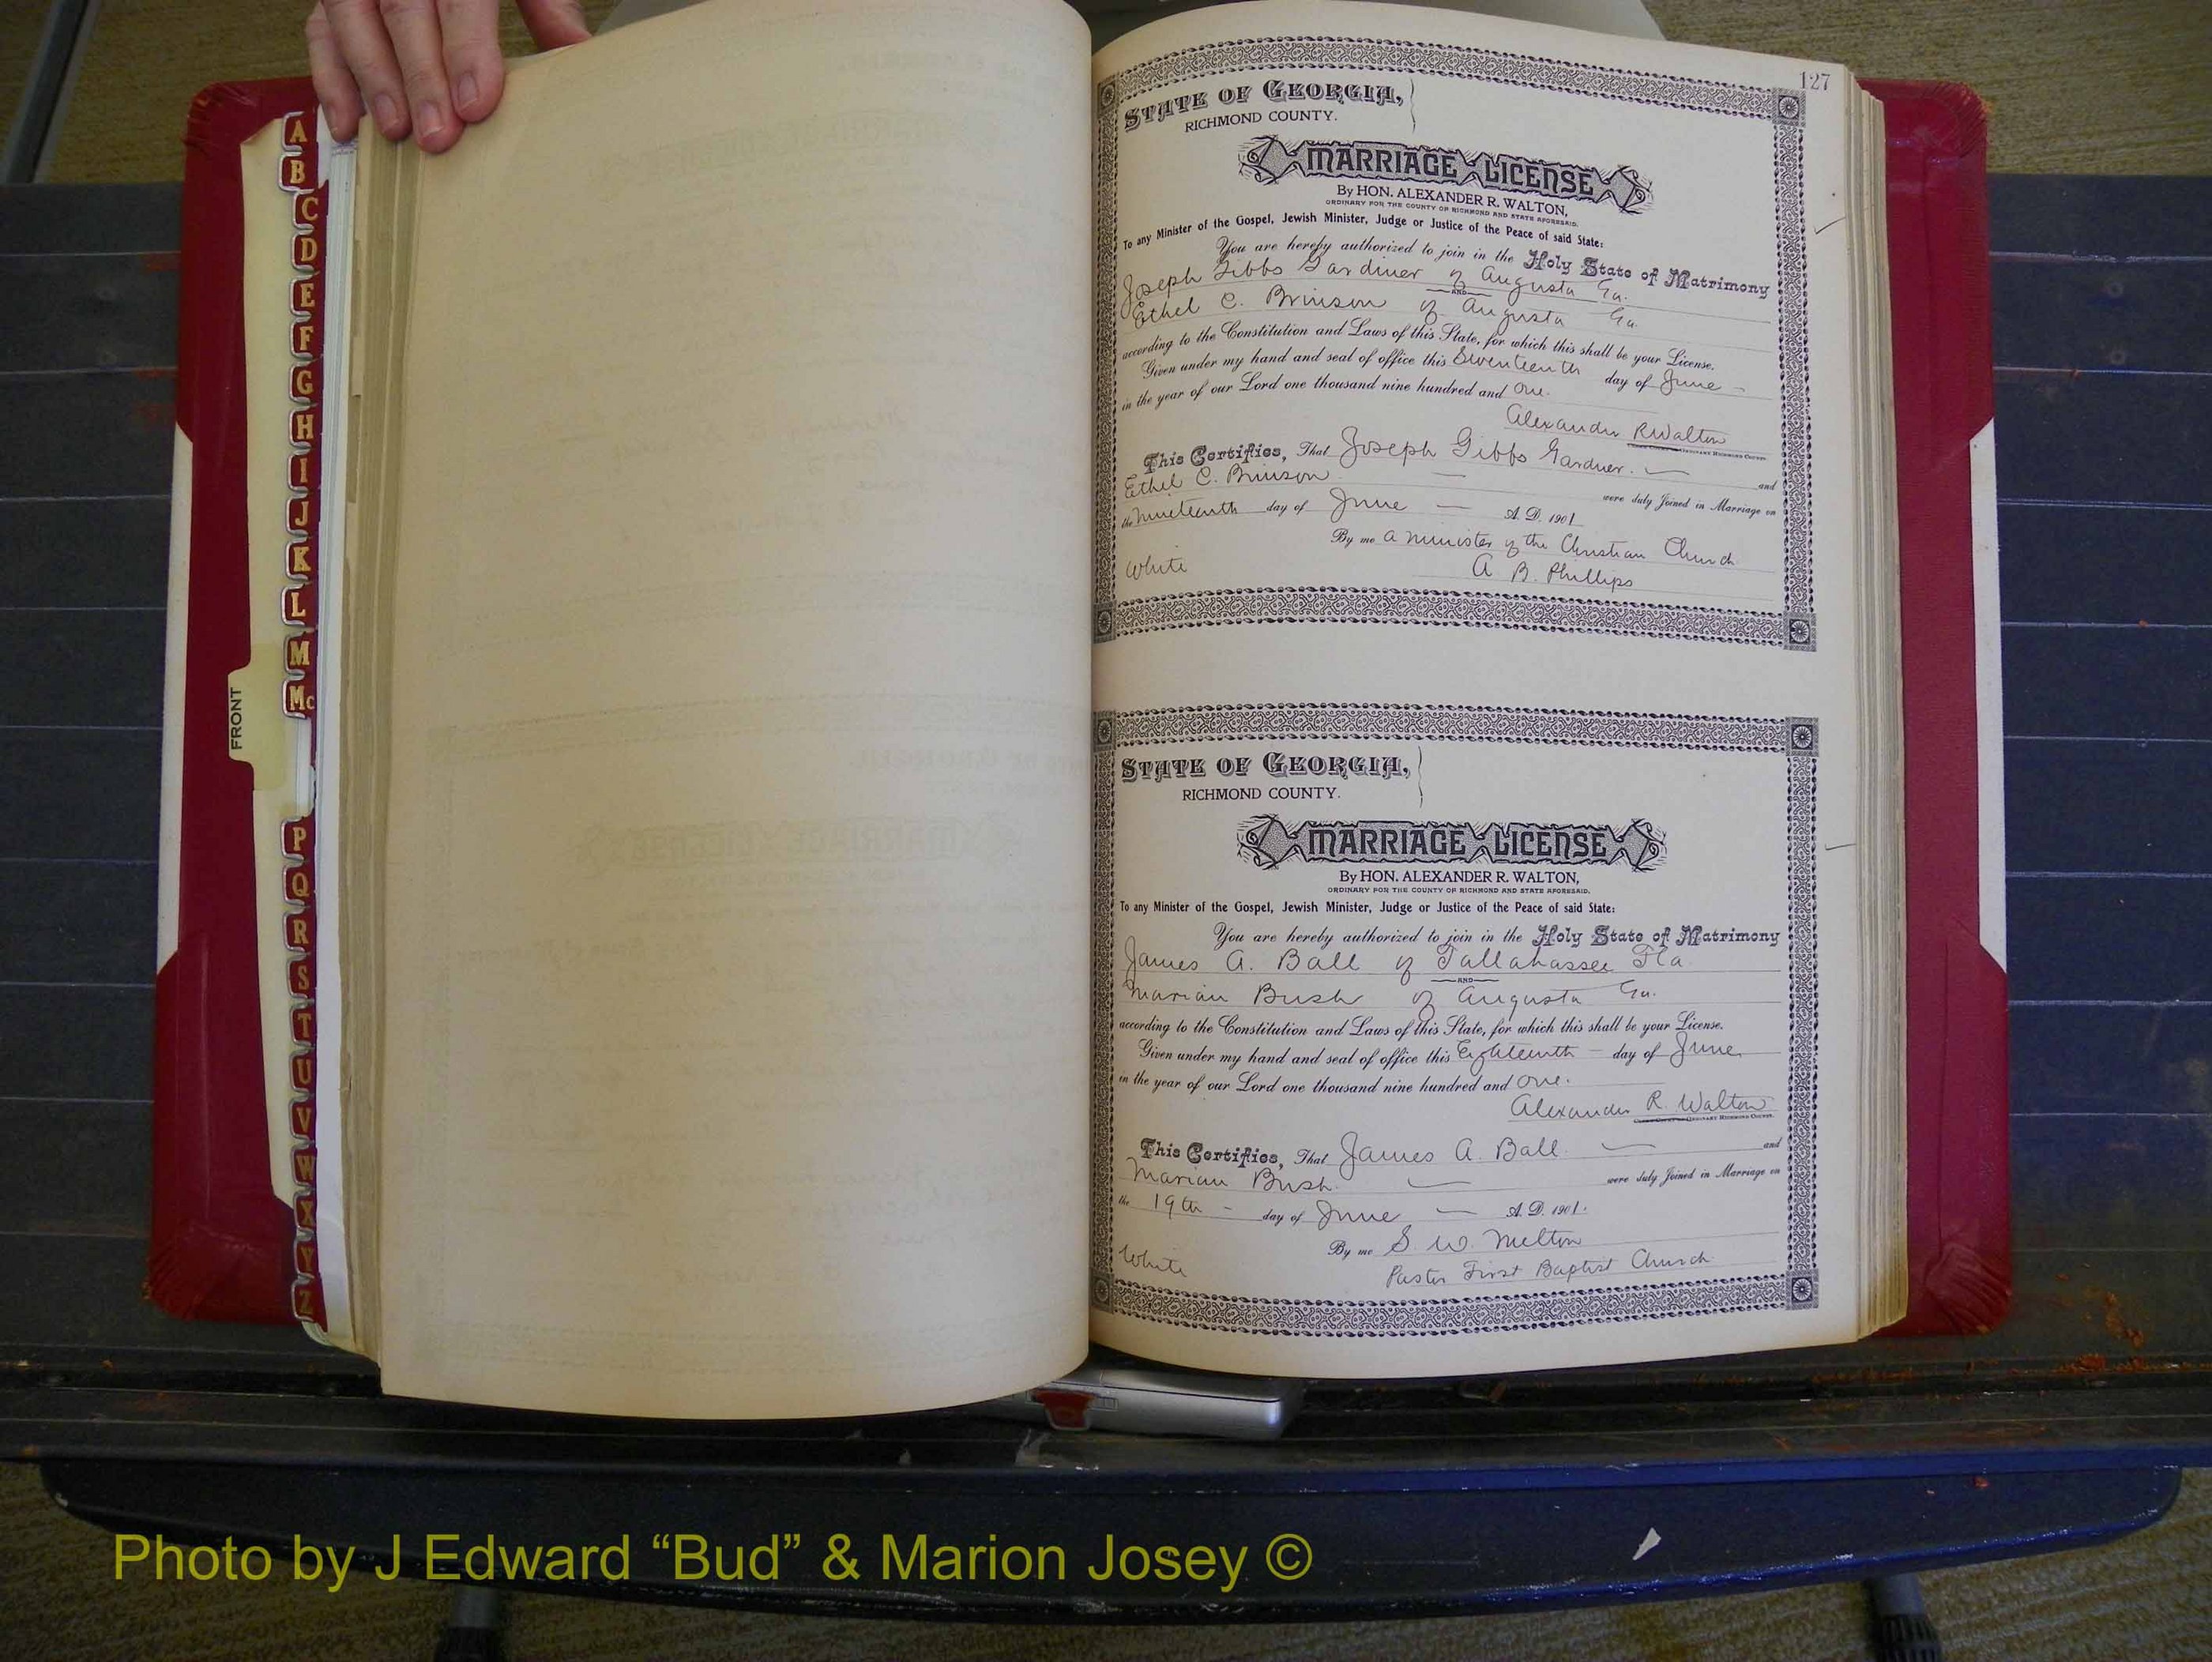 127
STATE OF GEORGIA,
RICHMOND COUNTY.
MARRIAGE LICENSE
By HON. ALEXANDER R. WALTON,
ORDINARY FOR THE COUNTY OF RICHMOND AND STATE AFORESAID.
To any Minister of the Gospel, Jewish Minister, Judge or Justice of the Peace of said State:
You are hereby authorized to join in the Holy State of Matrimony
Joseph Gibbs Gardiner of Augusta Ga.
AND
Ethel C. Brinson of Augusta Ga
according to the Constitution and Laws of this State, for which this shall be your License.
Given under my hand and seal of office this Seventeenth day of June
in the year of our Lord one thousand nine hundred and One.
Alexander R Walton
ORDINARY RICHMOND COUNTY.
This Certifies, That Joseph Gibbs Gardner. and
Ethel C. Brinson were duly Joined in Marriage on
the Nineteenth day of June A. D. 1901
By me a minister of the Christian Church
White A. B. Phillips
STATE OF GEORGIA,
RICHMOND COUNTY.
MARRIAGE LICENSE
By HON. ALEXANDER R. WALTON,
ORDINARY FOR THE COUNTY OF RICHMOND AND STATE AFORESAID.
To any Minister of the Gospel, Jewish Minister, Judge or Justice of the Peace of said State:
You are hereby authorized to join in the Holy State of Matrimony
James A. Ball of Tallahassee Fla
AND
Marian Bush of Augusta Ga.
according to the Constitution and Laws of this State, for which this shall be your License.
Given under my hand and seal of office this Eighteenth day of June
in the year of our Lord one thousand nine hundred and One.
Alexander R. Walton
ORDINARY RICHMOND COUNTY.
This Certifies, That James A. Ball and
Marian Bush. were duly Joined in Marriage on
the 19th day of June A. D. 1901.
By me S. W. Melton
White Pastor First Baptist Church
A
B
C
D
E
F
G
H
I
J
K
L
M
Mc
FRONT
P
Q
R
S
T
U
V
W
X
Y
Z
Photo by J Edward “Bud” & Marion Josey ©